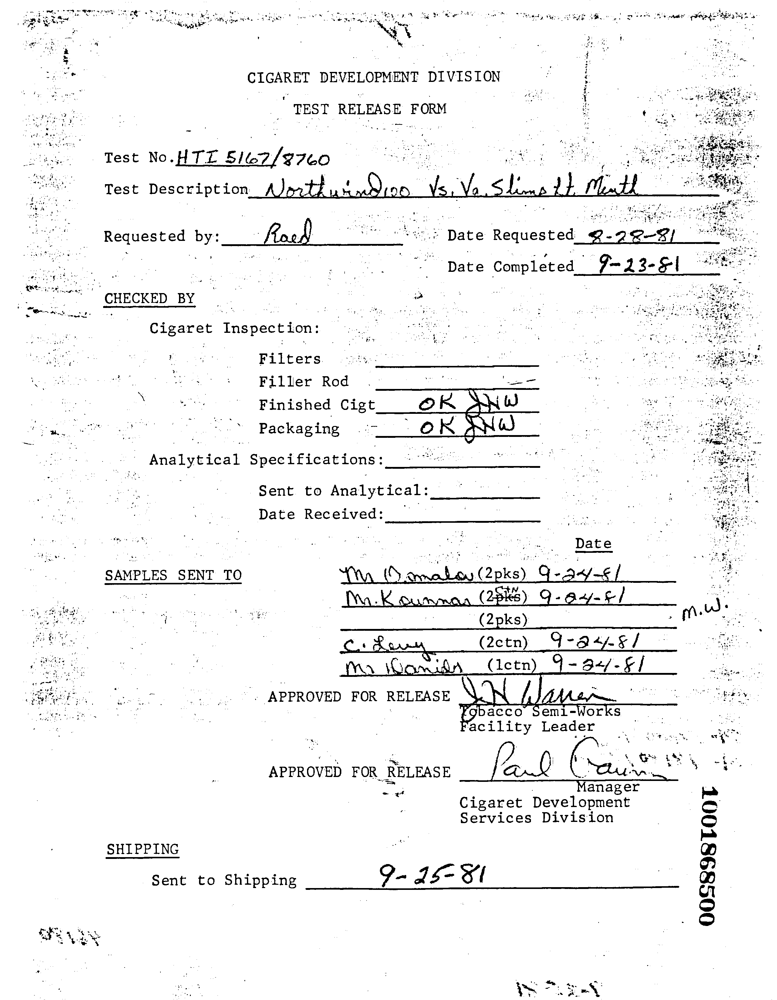 CIGARET DEVELOPMENT DIVISION
TEST RELEASE FORM
Test No. HTI 5167/8760
Test Description Northwind 100 Vs. Va. Slims Lt. Menth
Requested by: Raed
Date Requested 8-28-81
Date Completed 9-23-81
CHECKED BY
Cigaret Inspection:
Filters
Filler Rod
Finished Cigt OK JHW
Packaging OK JHW
Analytical Specifications:
Sent to Analytical:
Date Received:
Date
SAMPLES SENT TO
(2pks) 9-24-81
Mr. Kounnas (2 9-24-81
M.W.
(2pks)
C. Levy (2ctn) 9-24-81
Mr Daniels (1ctn) 9-24-81
APPROVED FOR RELEASE JH Warren
Tobacco Semi-Works
Facility Leader
APPROVED FOR RELEASE Paul
Manager
Cigaret Development
Services Division
SHIPPING
Sent to Shipping 9-25-81
1001868500